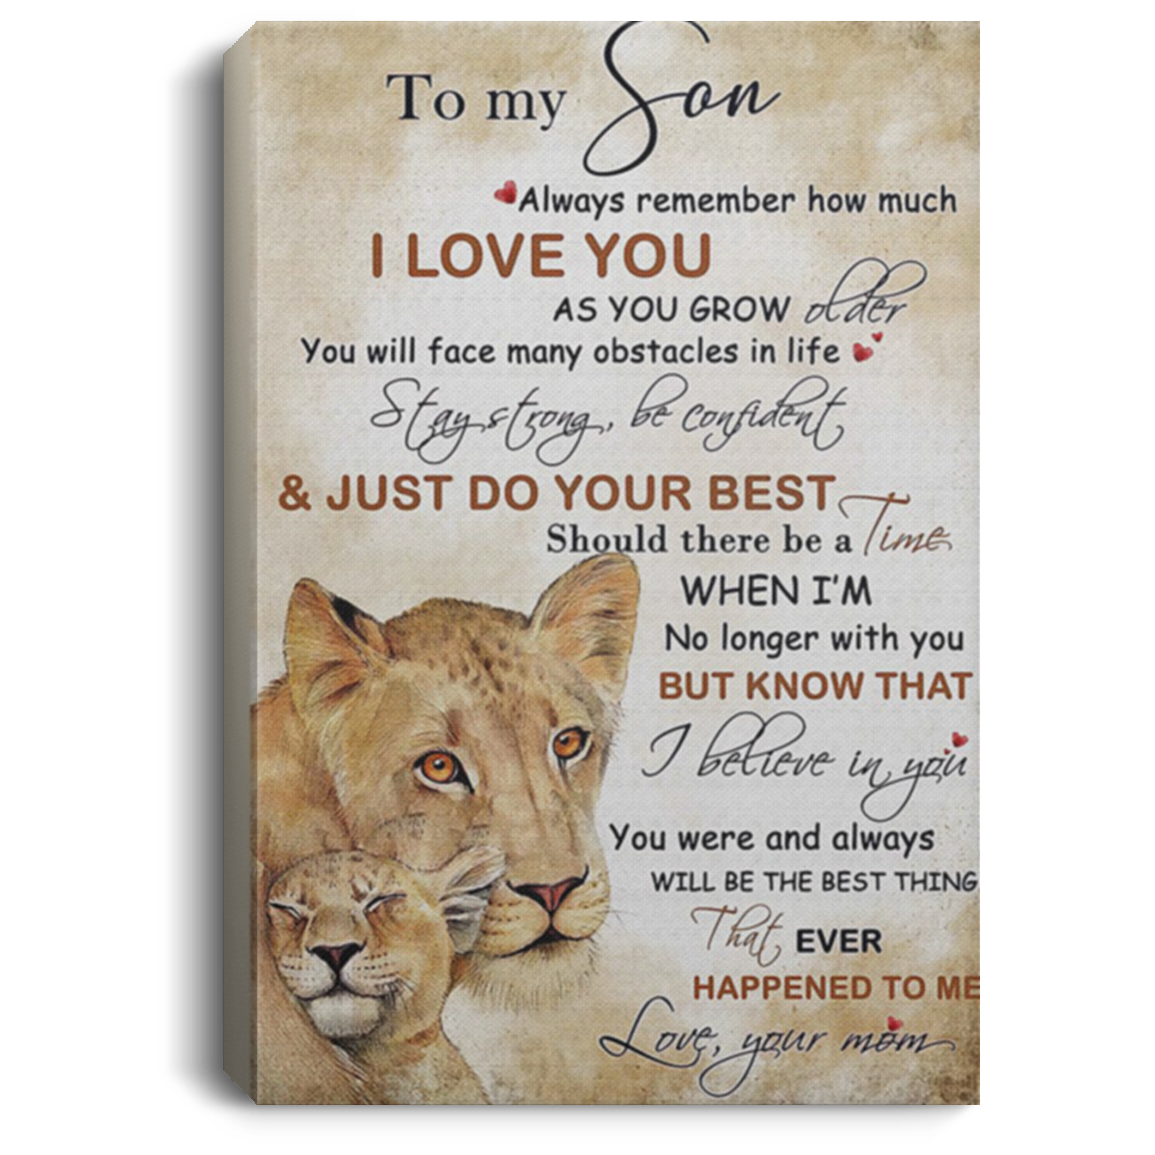 To my Son
Always remember how much
I LOVE YOU
AS YOU GROW older
You will face many obstacles in life
Stay strong, be confident
& JUST DO YOUR BEST
Should there be a Time
WHEN I'M
No longer with you
BUT KNOW THAT
I believe in you
You were and always
WILL BE THE BEST THING
That EVER
HAPPENED TO ME
Love, your mom